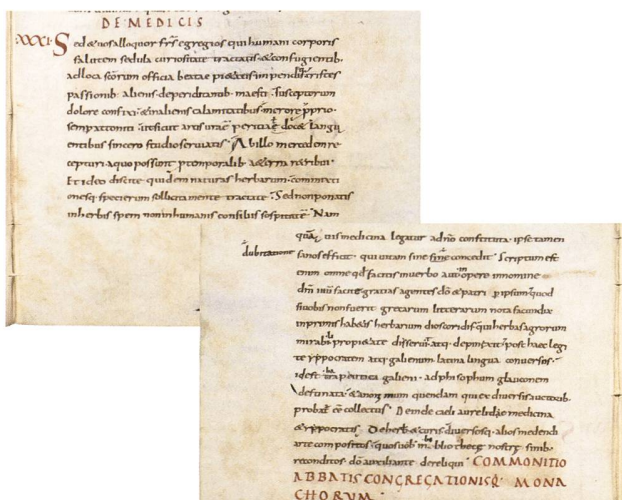 DE MEDICIS
XXXI. Sed & uos alloquor frs egregios qui humani corporis
salutem sedula curiositate tractatis & confugientib;
ad loca scorum officia beatae pi&atis impenditis tristes
passionib; alienis de periclitantib; maesti susceptorum
dolore confixi & in alienis calamitatibus merore pprio
semp attoniti ut sicut artis urae peritia doc& langu
entibus sincero studio seruiatis Ab illo mercedem re
cepturi a quo possunt p temporalib; a&erna retribui
Et ideo discite quidem naturas herbarum commixti
onesq; specierum sollicita mente tractate Sed non ponatis
in herbis spem non in humanis consiliis sospitate Nam
quauis medicina legatur a dno constituta ipse tamen
dubitatione sanos efficit qui uitam sine fine concedit Scriptum est
enim omne qd facitis in uerbo aut in opere in nomine
dni ihu facite gratias agentes do & patri p ipsum quod
si uobis non fuerit grecarum litterarum nota facundia
in primis hab&is herbarium dioscoridis qui herbas agrorum
mirabili propri&ate disseruit atq; depinxit post haec legi
te yppocratem atq; galienum latina lingua conuersos
id est therapeutica galieni ad philosophum glauconem
destinata & anonymum quendam qui ex diuersis auctorib;
probat ee collectus Deinde caeli aureli de medicina
& yppocratis De herbis & curis diuersosq; alios medendi
arte compositos quos uob in bibliothece nostre sinib;
reconditos do auxiliante dereliqui COMMONITIO
ABBATIS CONGREGATIONISQ; MONA
CHORVM